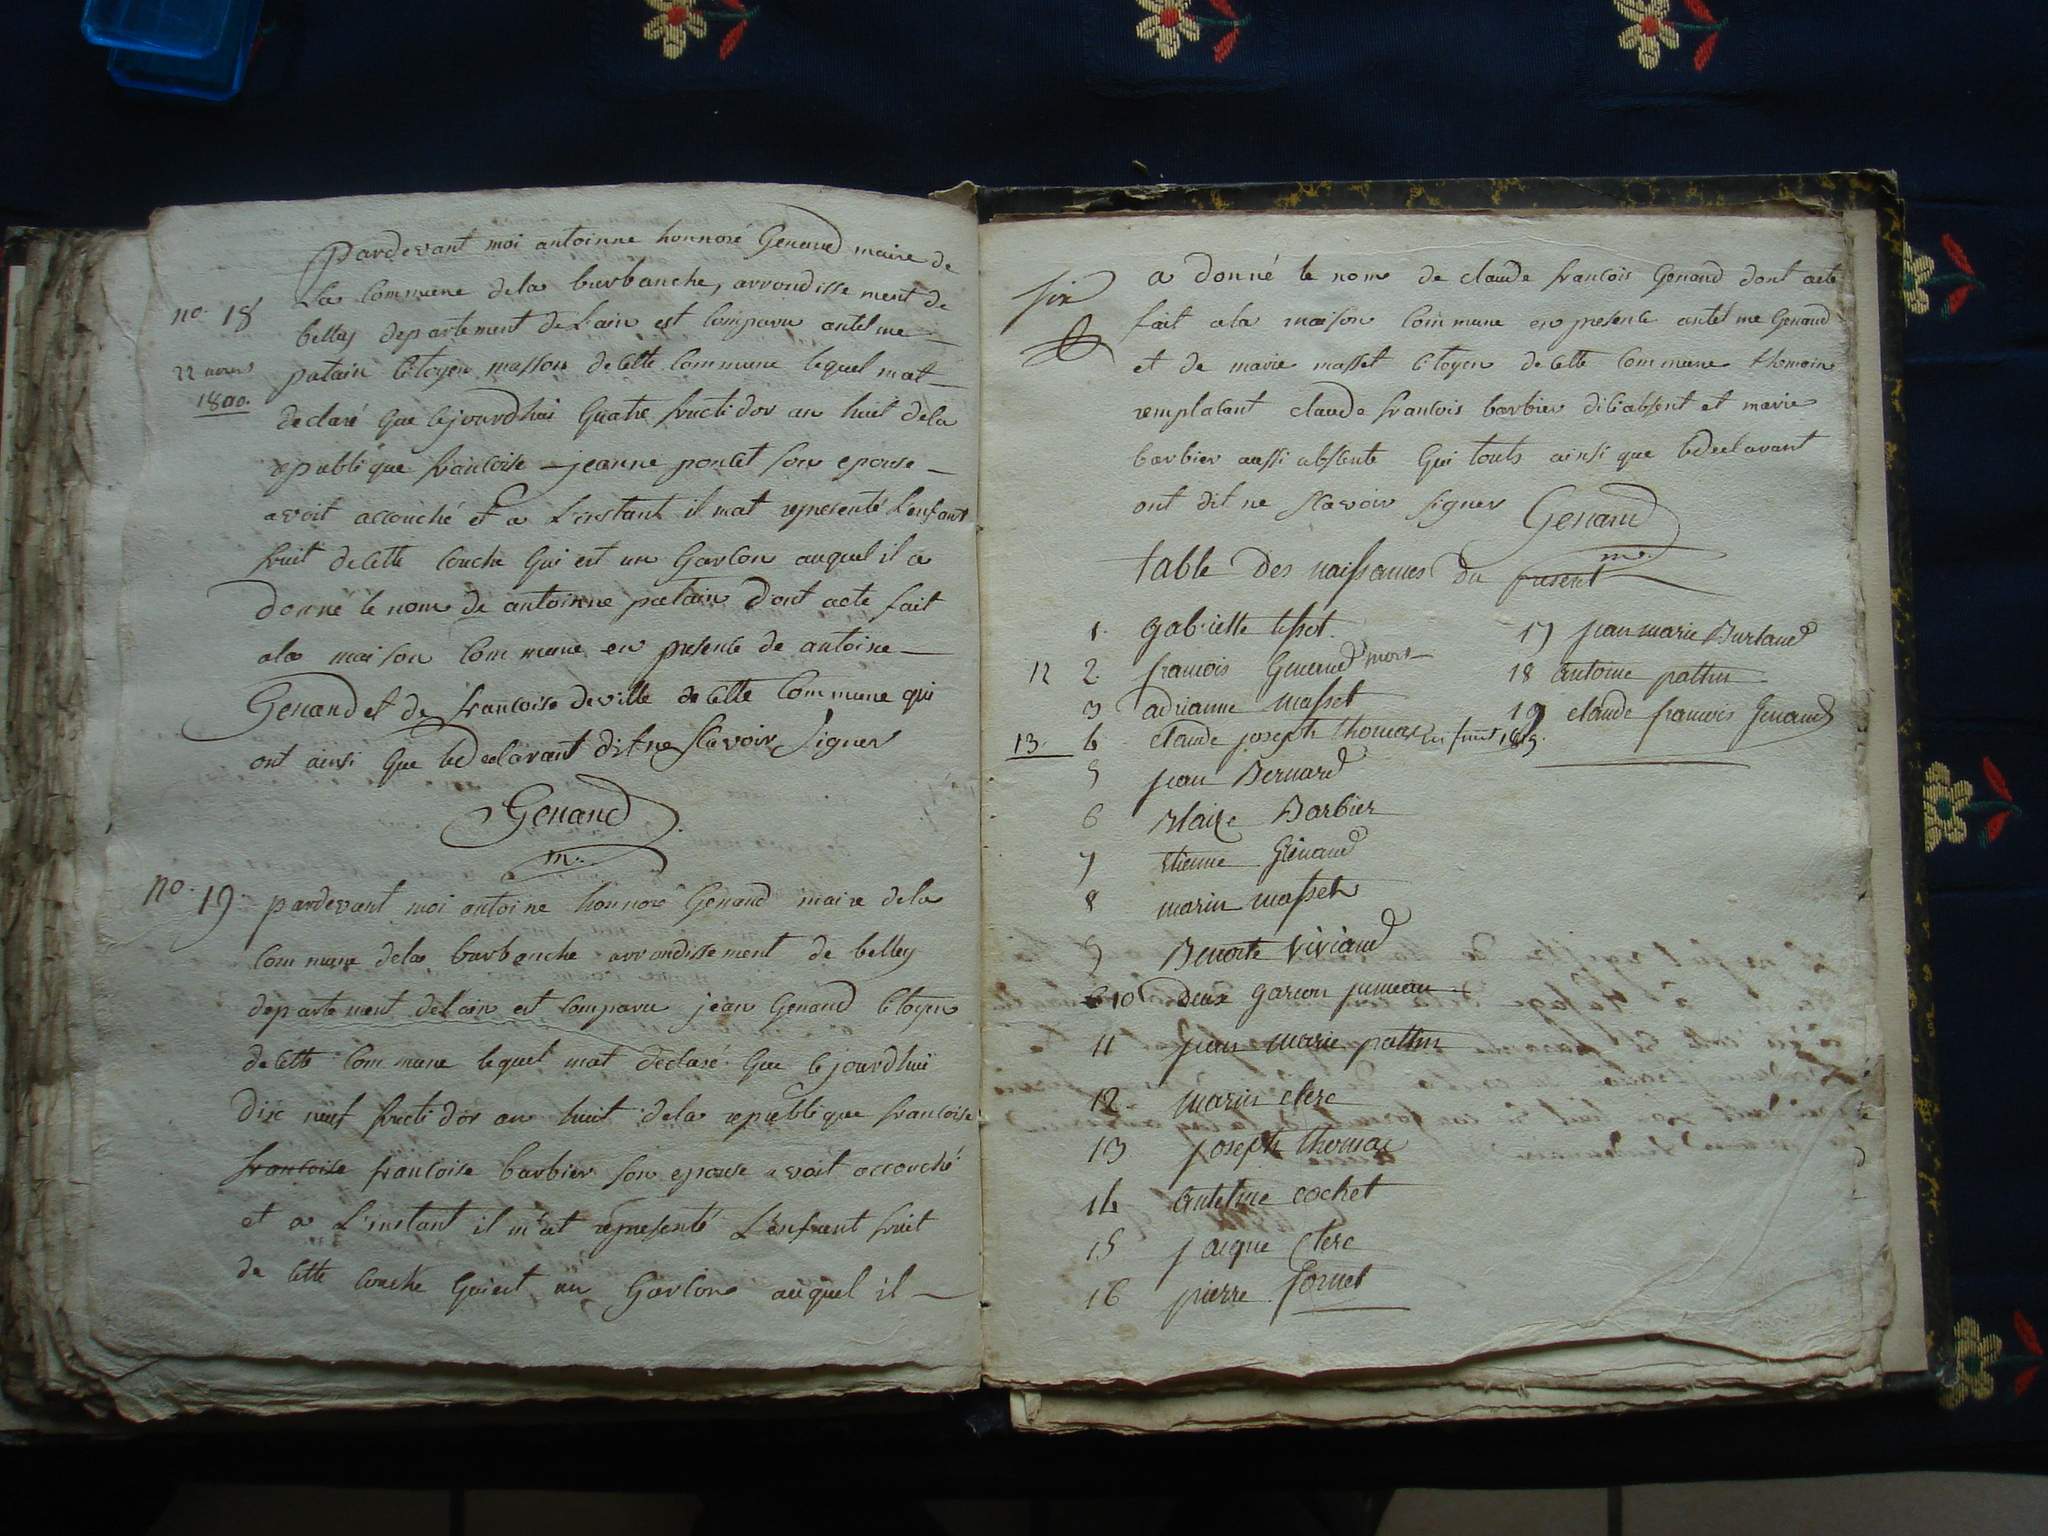 pardevant moi antoinne honnoré Genand maire de
no. 18 La Commune dela burbanche, arrondissement de
belley departement de Lain est Comparu antelme
22
1800.
patain Citoyen masson de Cette Commune lequel mat
declaré que Cejourdhui quatre fructidor an huit dela
republique francoise jeanne poncet son epouse
avoit accouché et a Linstant il mat representé Lenfant
fruit de Cette Couche qui est un Garcon auquel il a
donné le nom de antoinne patain dont acte fait
ala maison Commune en presence de antoine
Genand et de francoise deville de Cette Commune qui
ont ainsi que ledeclarant dit ne scavoir signer
Genand
m.
no. 19 pardevant moi antoine honnoré Genand maire dela
Commune dela burbanche arrondissement de belley
departement delain est Comparu jean Genand Citoyen
de Cette Commune lequel mat declaré que Cejourdhui
dix neuf fructidor an huit dela republique francoise
francoise francoise barbier son epouse avoit accouché
et a L'instant il m'at representé L'enfant fruit
de Cette Couche qui est un Garcon auquel il
six a donné le nom de claude francois Genand dont acte
fait ala maison Commune en presence antelme Genand
et de marie masset Citoyen de Cette Commune themoins
remplacant claude francois barbier diti absent et marie
barbier aussi absente qui touts ainsi que ledeclarant
ont dit ne scavoir signer Genand
m.
table des naissances du present
1. gabrielle tissot.
12 2. francois Genend mort
3 adrianne masset
13. 4 claude joseph thomas
5 jean Bernard
6 Blaize Barbier
7 etienne Génand
8 marin masset
9 Benoite Viviand
10 deux garcon jumeau
11 jean marie pattin
12. marin clerc
13 joseph thomas
14 antelme cochet
15 jacque Clerc
16 pierre fornet
17 jean marie Burtand
18 antoine pattin
19 claude francois Genand